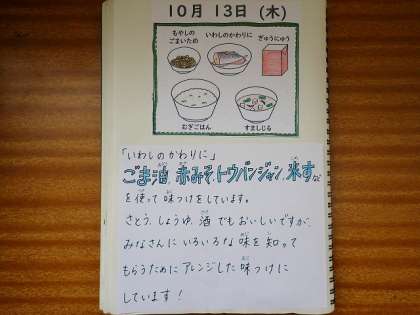 10月 13日 (木)
もやしの
ごまいため
いわしのかわりに
ぎゅうにゅう
むぎごはん
すましじる
「いわしのかわりに」
ごま油、赤みそ、トウバンジャン、米すなど
を使って味つけをしています。
さとう、しょうゆ、酒でもおいしいですが、
みなさんにいろいろな味を知って
もらうためにアレンジした味つけに
しています！